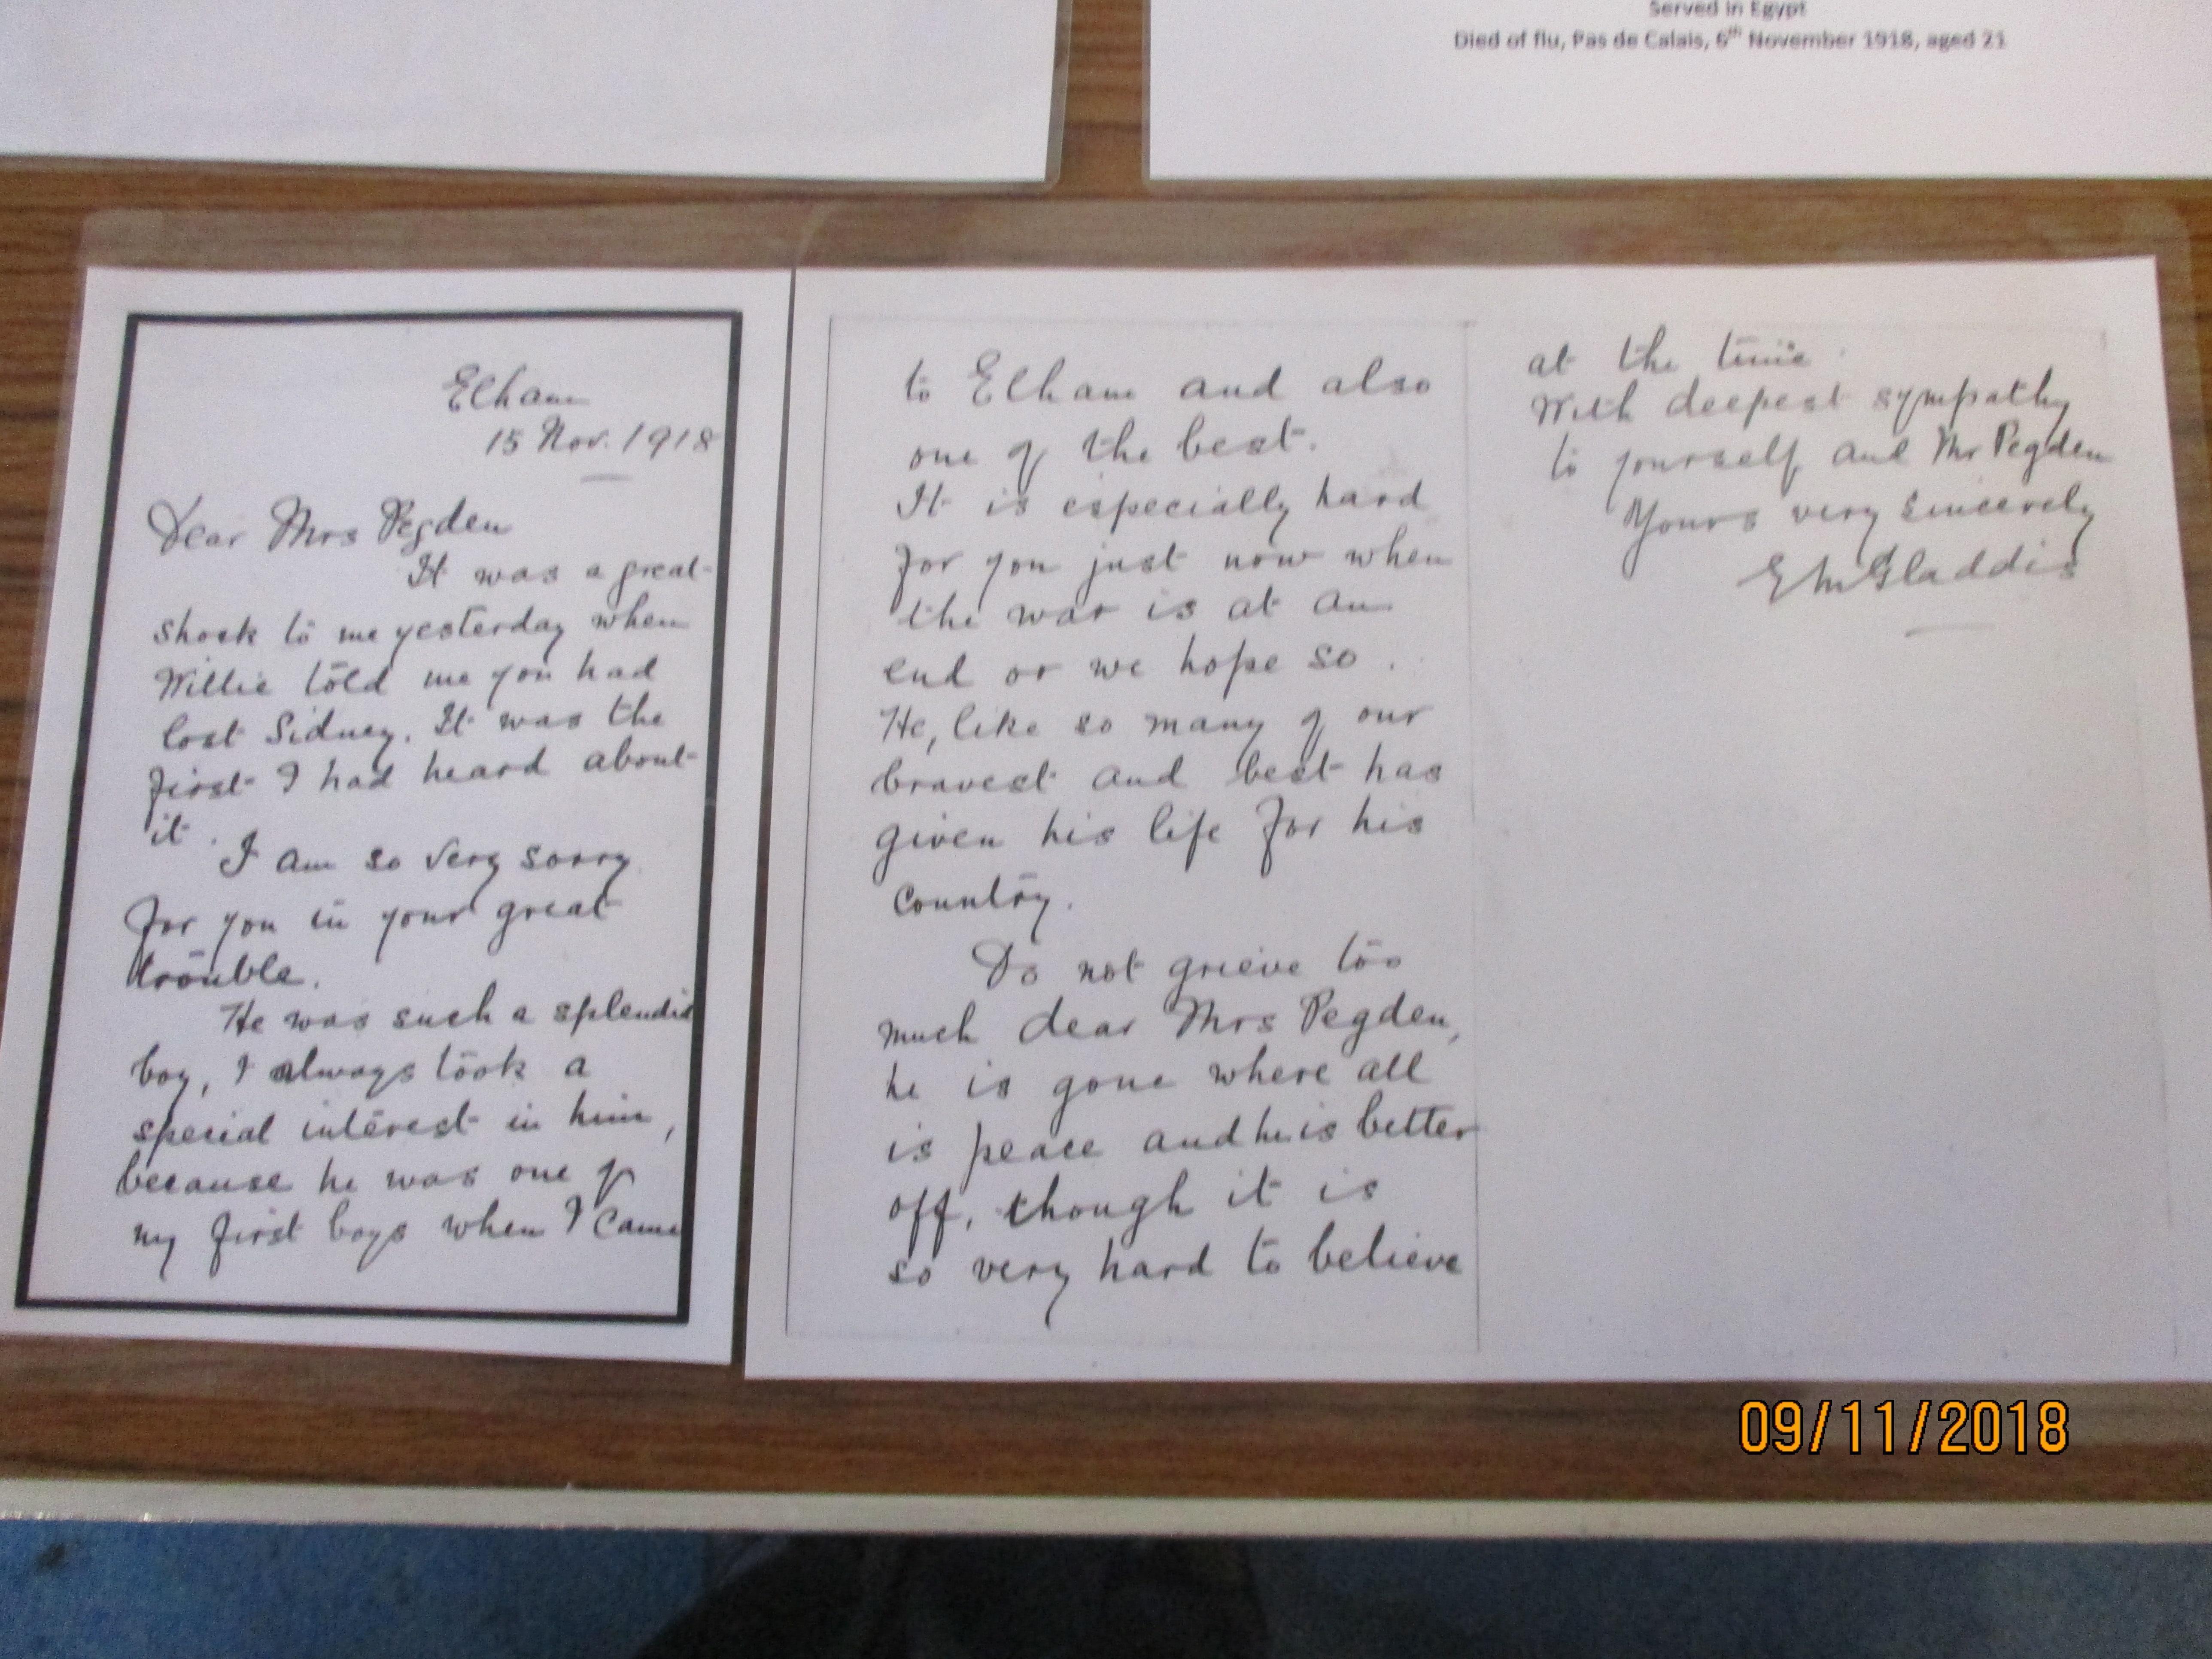 Served in Egypt
Died of flu, Pas de Calais, 6th November 1918, aged 21
Elham
15 Nov. 1918
Dear Mrs Pegden
It was a great
shock to me yesterday when
Willie told me you had
lost Sidney. It was the
first I had heard about
it.
I am so very sorry
for you in your great
trouble.
He was such a splendid
boy, I always took a
special interest in him,
because he was one of
my first boys when I came
to Elham and also
one of the best.
It is especially hard
for you just now when
the war is at an
end or we hope so.
He, like so many of our
bravest and best has
given his life for his
country.
Do not grieve too
much dear Mrs Pegden,
he is gone where all
is peace and he is better
off, though it is
so very hard to believe
at the time.
With deepest sympathy
to yourself and Mr Pegden
Yours very sincerely
E M Gladdis
09/11/2018